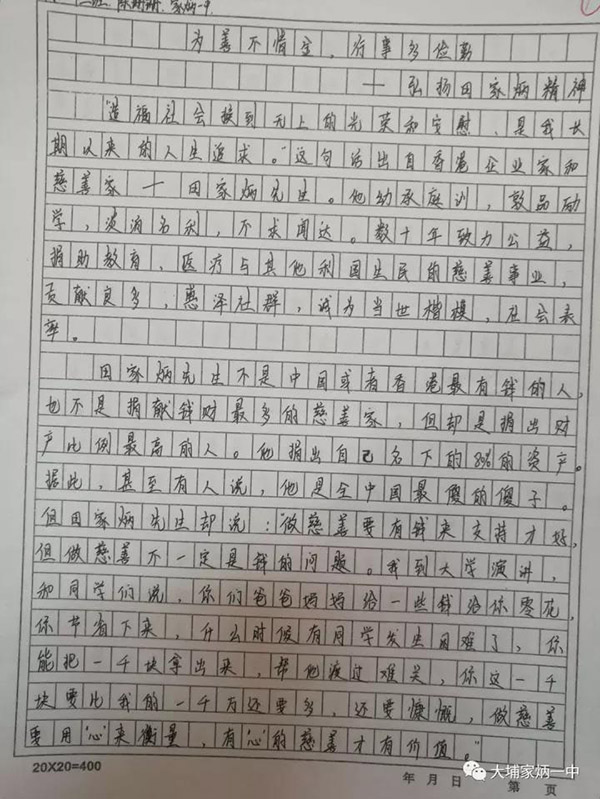 班 家炳一中
为善不惜金，行事多俭勤
——弘扬田家炳精神
“造福社会接到无上的光荣和安慰，是我长
期以来的人生追求。”这句话出自香港企业家和
慈善家——田家炳先生。他幼承庭训，敦品励
学，淡泊名利，不求闻达。数十年致力公益，
捐助教育、医疗与其他利国生民的慈善事业，
贡献良多，惠泽社群，诚为当世楷模，社会表
率。
田家炳先生不是中国或者香港最有钱的人，
也不是捐献钱财最多的慈善家，但却是捐出财
产比例最高的人。他捐出自己名下的80%的资产。
据此，甚至有人说，他是全中国最傻的傻子。
但田家炳先生却说：“做慈善要有钱来支持才好，
但做慈善不一定是钱的问题。我到大学演讲，
和同学们说，你们爸爸妈妈给一些钱给你零花，
你节省下来，什么时候有同学发生困难了，你
能把一千块拿出来，帮他渡过难关，你这一千
块要比我的一千万还要多，还要慷慨，做慈善
要用‘心’来衡量，有‘心’的慈善才有价值。”
20X20=400
年 月 日 第 页
大埔家炳一中